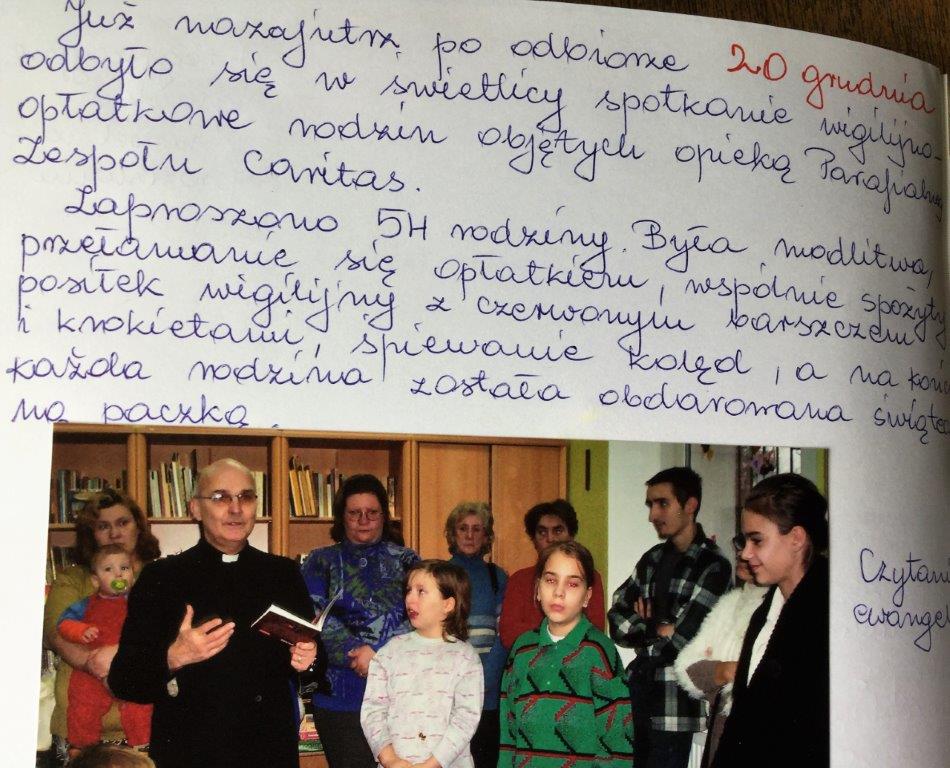 Już nazajutrz po odbiorze 20 grudnia
odbyło się w świetlicy spotkanie wigilijno-
opłatkowe rodzin objętych opieką Parafialne
Zespołu Caritas.
Zaproszono 54 rodziny. Była modlitwa,
przełamanie się opłatkiem, wspólnie spożyty
posiłek wigilijny z czerwonym barszczem
i krokietami, śpiewanie kolęd, a na końc
każda rodzina została obdarowana świątec
ną paczką.
Czytani
ewangel